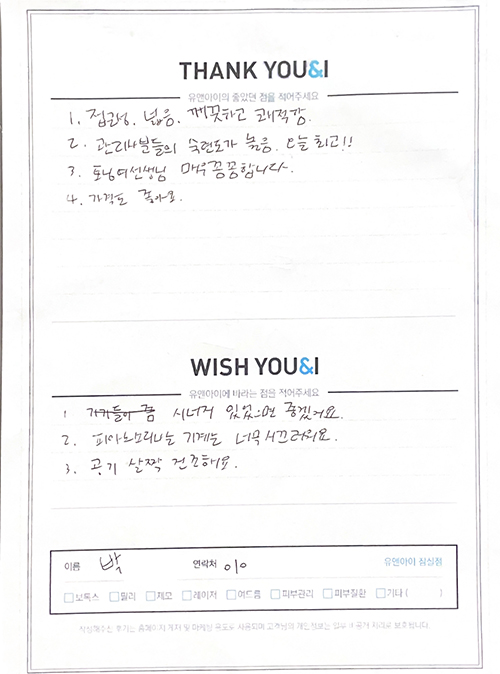 THANK YOU&I
유앤아이의 좋았던 점을 적어주세요
1. 접근성. 넓음. 깨끗하고 쾌적함.
2. 관리사분들의 숙련도가 높음. 오늘 최고!!
3. 매우 꼼꼼합니다.
4. 가격도 좋아요.
WISH YOU&I
유앤아이에 바라는 점을 적어주세요
1 있었으면 좋겠어요.
2. 피아노소리나는 기계는 너무 시끄러워요.
3. 공기 살짝 건조해요.
이름 박 연락처 010 유앤아이 잠실점
보톡스 필러 제모 레이저 여드름 피부관리 피부질환 기타 ( )
작성해주신 후기는 홈페이지 게재 및 마케팅 용도로 사용되며 고객님의 개인정보는 업무 외 공개 처리로 보호됩니다.